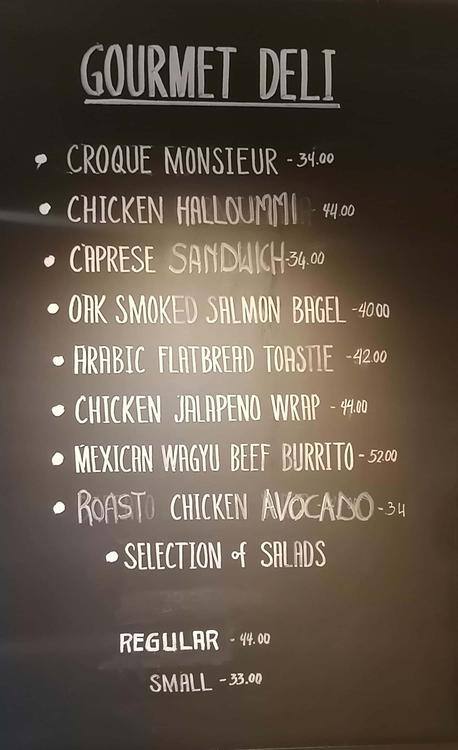 GOURMET DELI
• CROQUE MONSIEUR - 34.00
• CHICKEN HALLOUMMI - 44.00
• CAPRESE SANDWICH -34.00
• OAK SMOKED SALMON BAGEL -4000
• ARABIC FLATBREAD TOASTIE -42.00
• CHICKEN JALAPENO WRAP - 44.00
• MEXICAN WAGYU BEEF BURRITO - 52.00
• ROASTO CHICKEN AVOCADO -34
• SELECTION of SALADS
REGULAR - 44.00
SMALL - 33.00